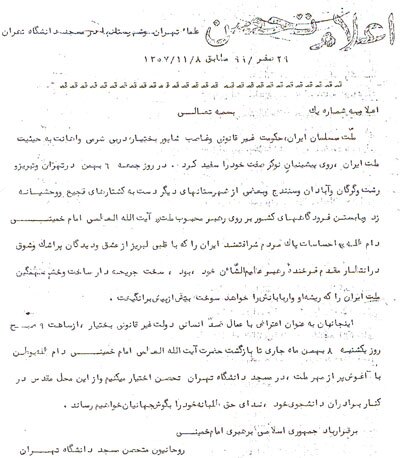 اعلام تحصن
علماء تهران وشهرستان‌ها در مسجد دانشگاه تهران
۲۹ صفر /۹۹ مطابق ۱۳۵۷/۱۱/۸
اعلامیه شماره یک بسمه تعالی
ملت مسلمان ایران، حکومت غیر قانونی وغاصب شاپور بختیار، دربی شرمی واهانت به حیثیت
ملت ایران ، روی پیشینیان نوکر صفت خود را سفید کرد . در روز جمعه ۶ بهمن در تهران وتبریز و
رشت وگرگان وآبادان وسنندج وبعضی از شهرستانهای دیگر دست به کشتارهای فجیع ووحشیانه
زد وبا بستن فرودگاههای کشور بر روی رهبر محبوب ملت ، آیت الله العظمی امام خمینی
دام ظله با احساسات پاک مردم شرافتمند ایران را که با قلبی لبریز از عشق ودیدگان پر اشک وشوق
در انتظار مقدم فرخنده رهبر عظیم الشأن خود ، بود ، سخت جریحه دار ساخت وخشم سهمگین
ملت ایران را که ریشه او واربابانش را خواهد سوخت بیش از پیش برانگیخت .
اینجانبان به عنوان اعتراض با عمال ضد انسانی دولت غیر قانونی بختیار ، از ساعت ۹ صبح
روز یکشنبه ۸ بهمن ماه جاری تا بازگشت حضرت آیت الله العظمی امام خمینی دام ظله
با آغوش پر از مهر ملت ، در مسجد دانشگاه تهران تحصن اختیار میکنیم واز این محل مقدس در
کنار برادران دانشجوی خود ، ندای حق طلبانه خود را بگوش جهانیان خواهیم رساند .
برقرار باد جمهوری اسلامی برهبری امام خمینی
روحانیون متحصن مسجد دانشگاه تهران